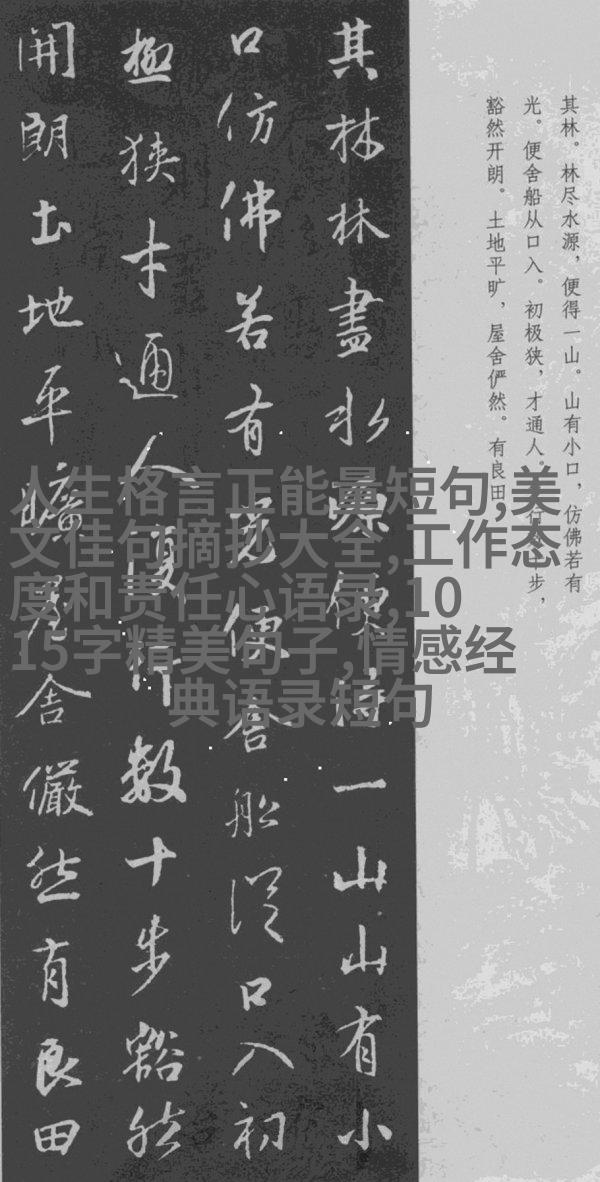 其林。林尽水源，便得一山。山有小口，仿佛若有
光。便舍船从口入。初极狭，才通人。行数十步，
豁然开朗。土地平旷，屋舍俨然。有良田
其林林盡水源便得一山山有小
口仿佛若有光便舍船從口入初
極狹才通人復行數十步豁然
開朗土地平曠屋舍儼然有良田
人生格言正能量短句,美
文佳句摘抄大全,工作态
度和责任心语录,10
15字精美句子,情感经
典语录短句